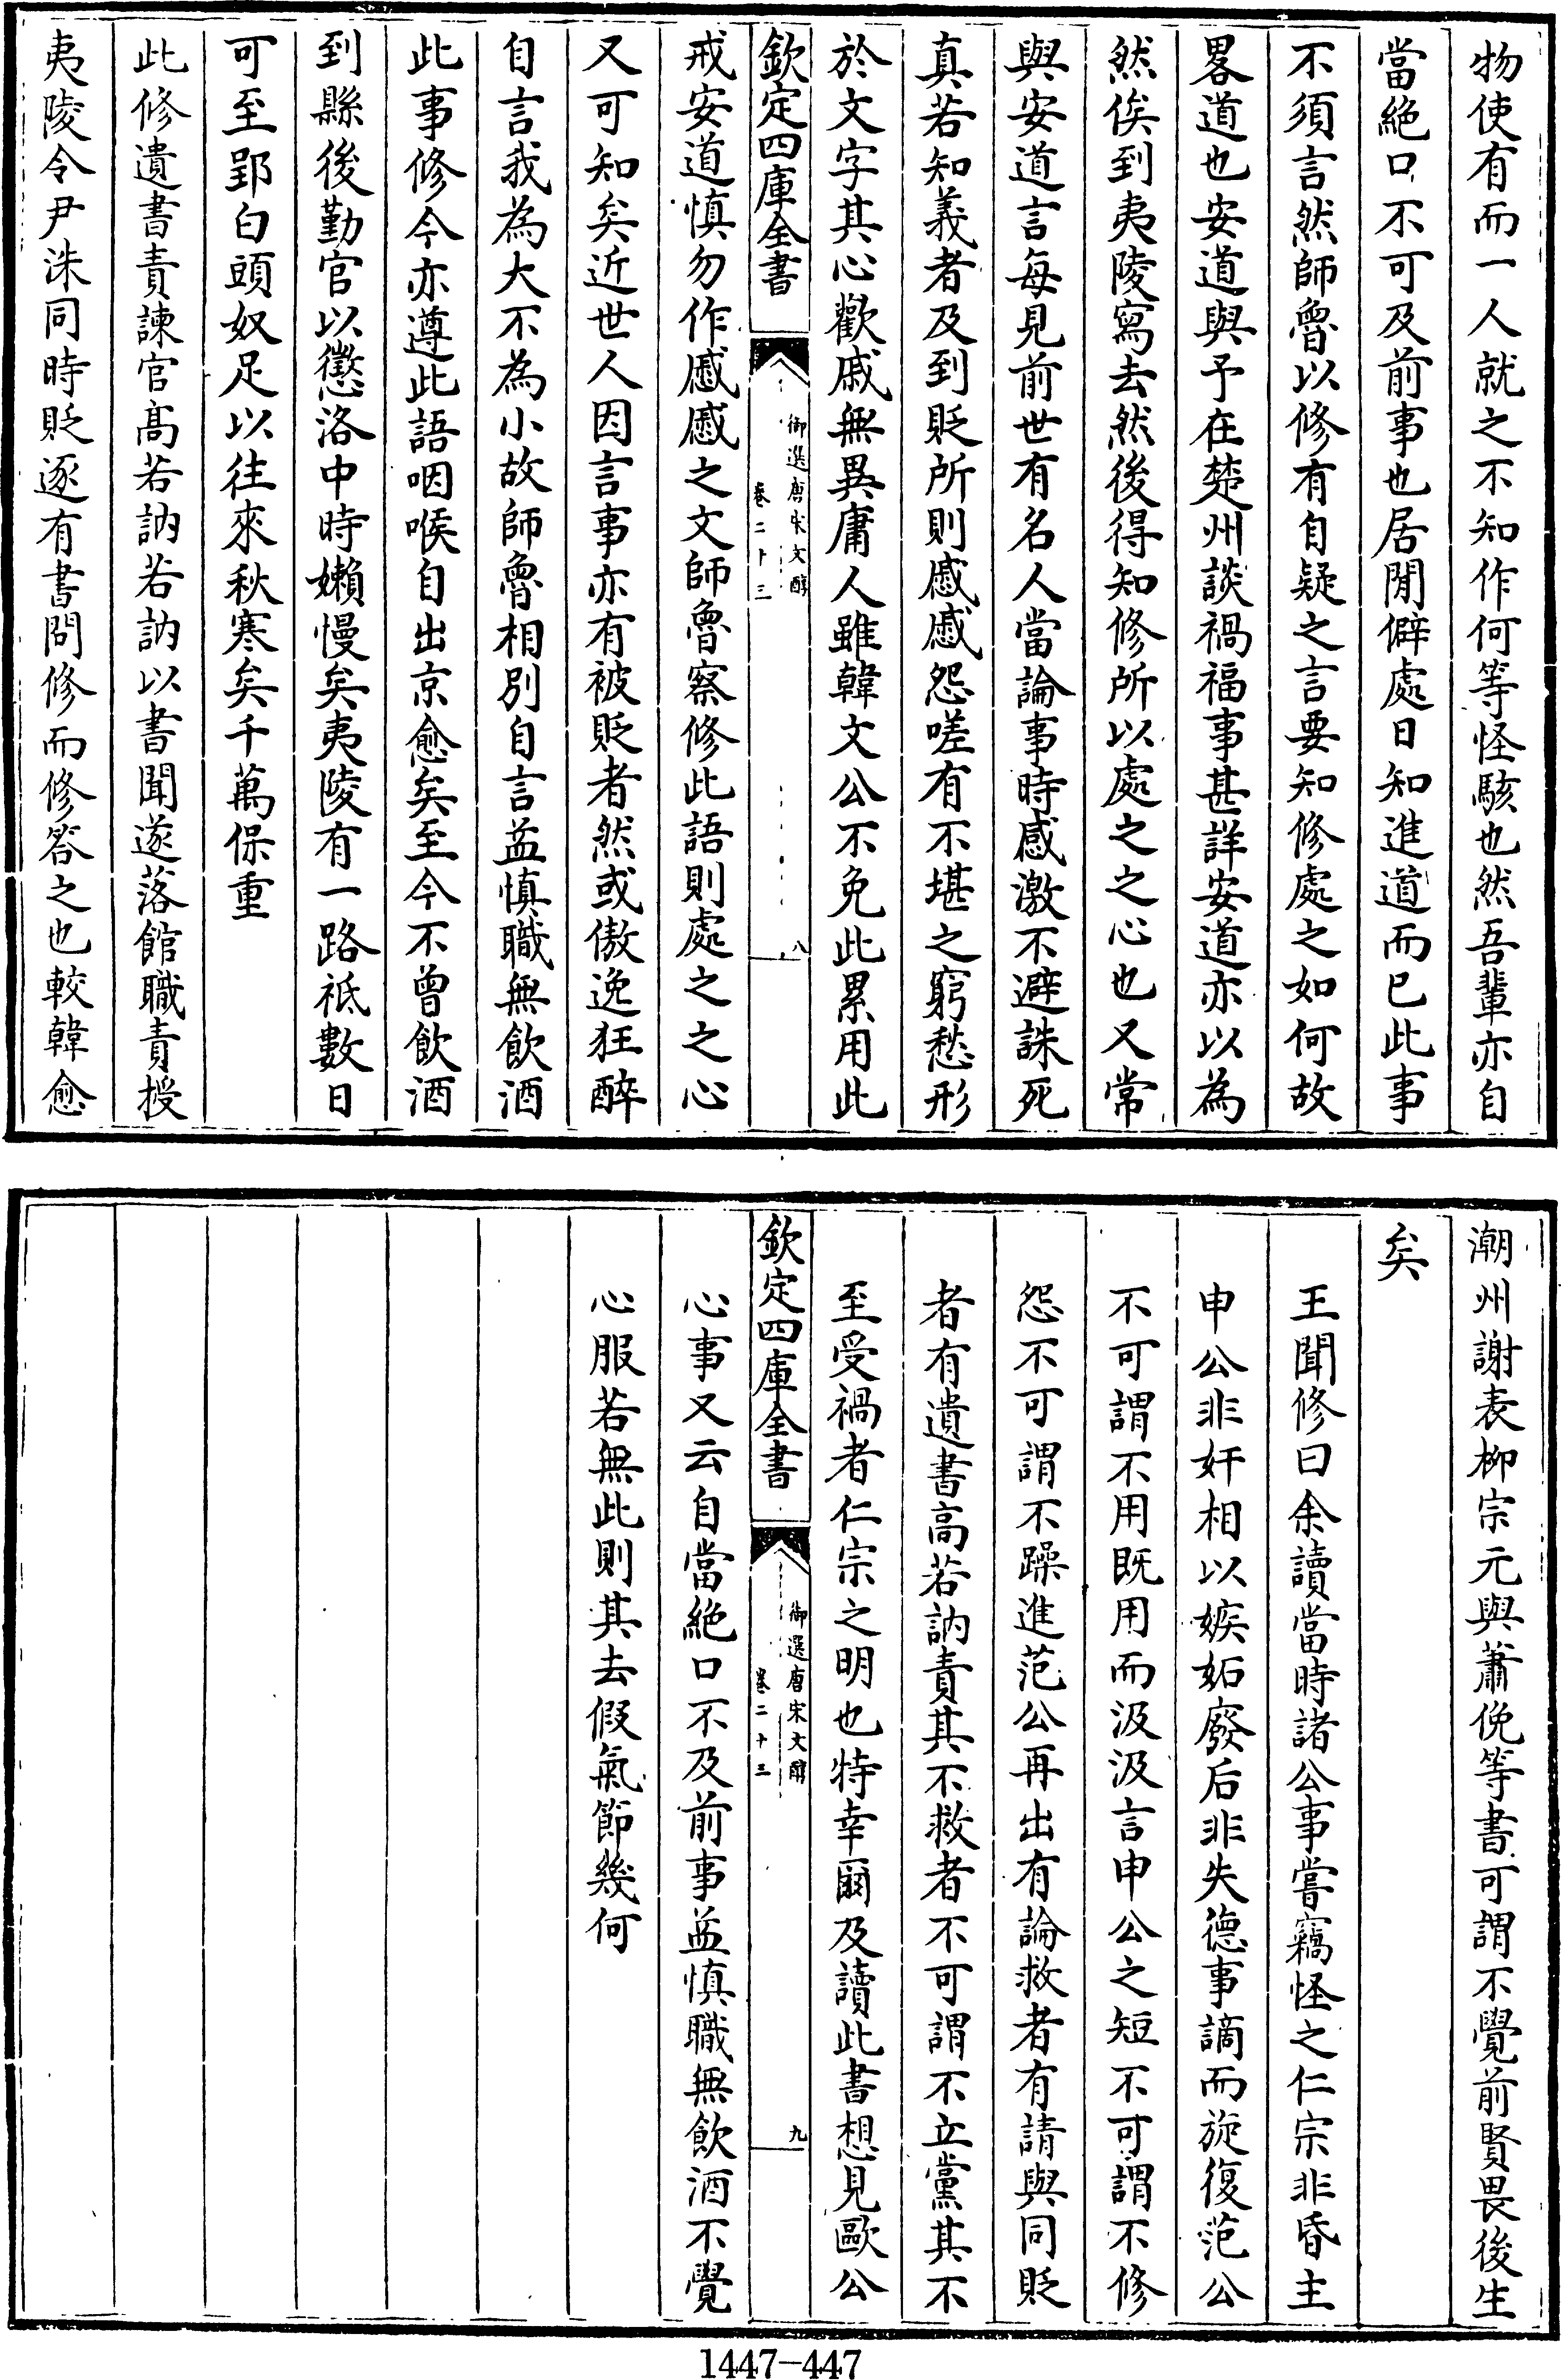 物使有而一人就之不知作何等怪駭也然吾輩亦自
當絶口不可及前事也居閒僻處日知進道而已此事
不須言然師魯以修有自疑之言要知修處之如何故
畧道也安道與予在楚州談禍福事甚詳安道亦以為
然俟到夷陵寫去然後得知修所以處之之心也又常
與安道言每見前世有名人當論事時感激不避誅死
真若知義者及到貶所則慼慼怨嗟有不堪之窮愁形
於文字其心歡戚無異庸人雖韓文公不免此累用此
欽定四庫全書
御選唐宋文醇
卷二十三
八
戒安道慎勿作慼慼之文師魯察修此語則處之之心
又可知矣近世人因言事亦有被貶者然或傲逸狂醉
自言我為大不為小故師魯相别自言益慎職無飲酒
此事修今亦遵此語咽喉自出京愈矣至今不曾飲酒
到縣後勤官以懲洛中時嬾慢矣夷陵有一路祗數日
可至郢白頭奴足以往來秋寒矣千萬保重
此修遺書責諫官高若訥若訥以書聞遂落館職責授
夷陵令尹洙同時貶逐有書問修而修答之也較韓愈
潮州謝表柳宗元與蕭俛等書可謂不覺前賢畏後生
矣
王聞修曰余讀當時諸公事嘗竊怪之仁宗非昏主
申公非奸相以嫉妬廢后非失德事謫而旋復范公
不可謂不用既用而汲汲言申公之短不可謂不修
怨不可謂不躁進范公再出有論救者有請與同貶
者有遺書高若訥責其不救者不可謂不立黨其不
至受禍者仁宗之明也特幸爾及讀此書想見歐公
欽定四庫全書
御選唐宋文醇
卷二十三
九
心事又云自當絶口不及前事益慎職無飲酒不覺
心服若無此則其去假氣節幾何
1447-447